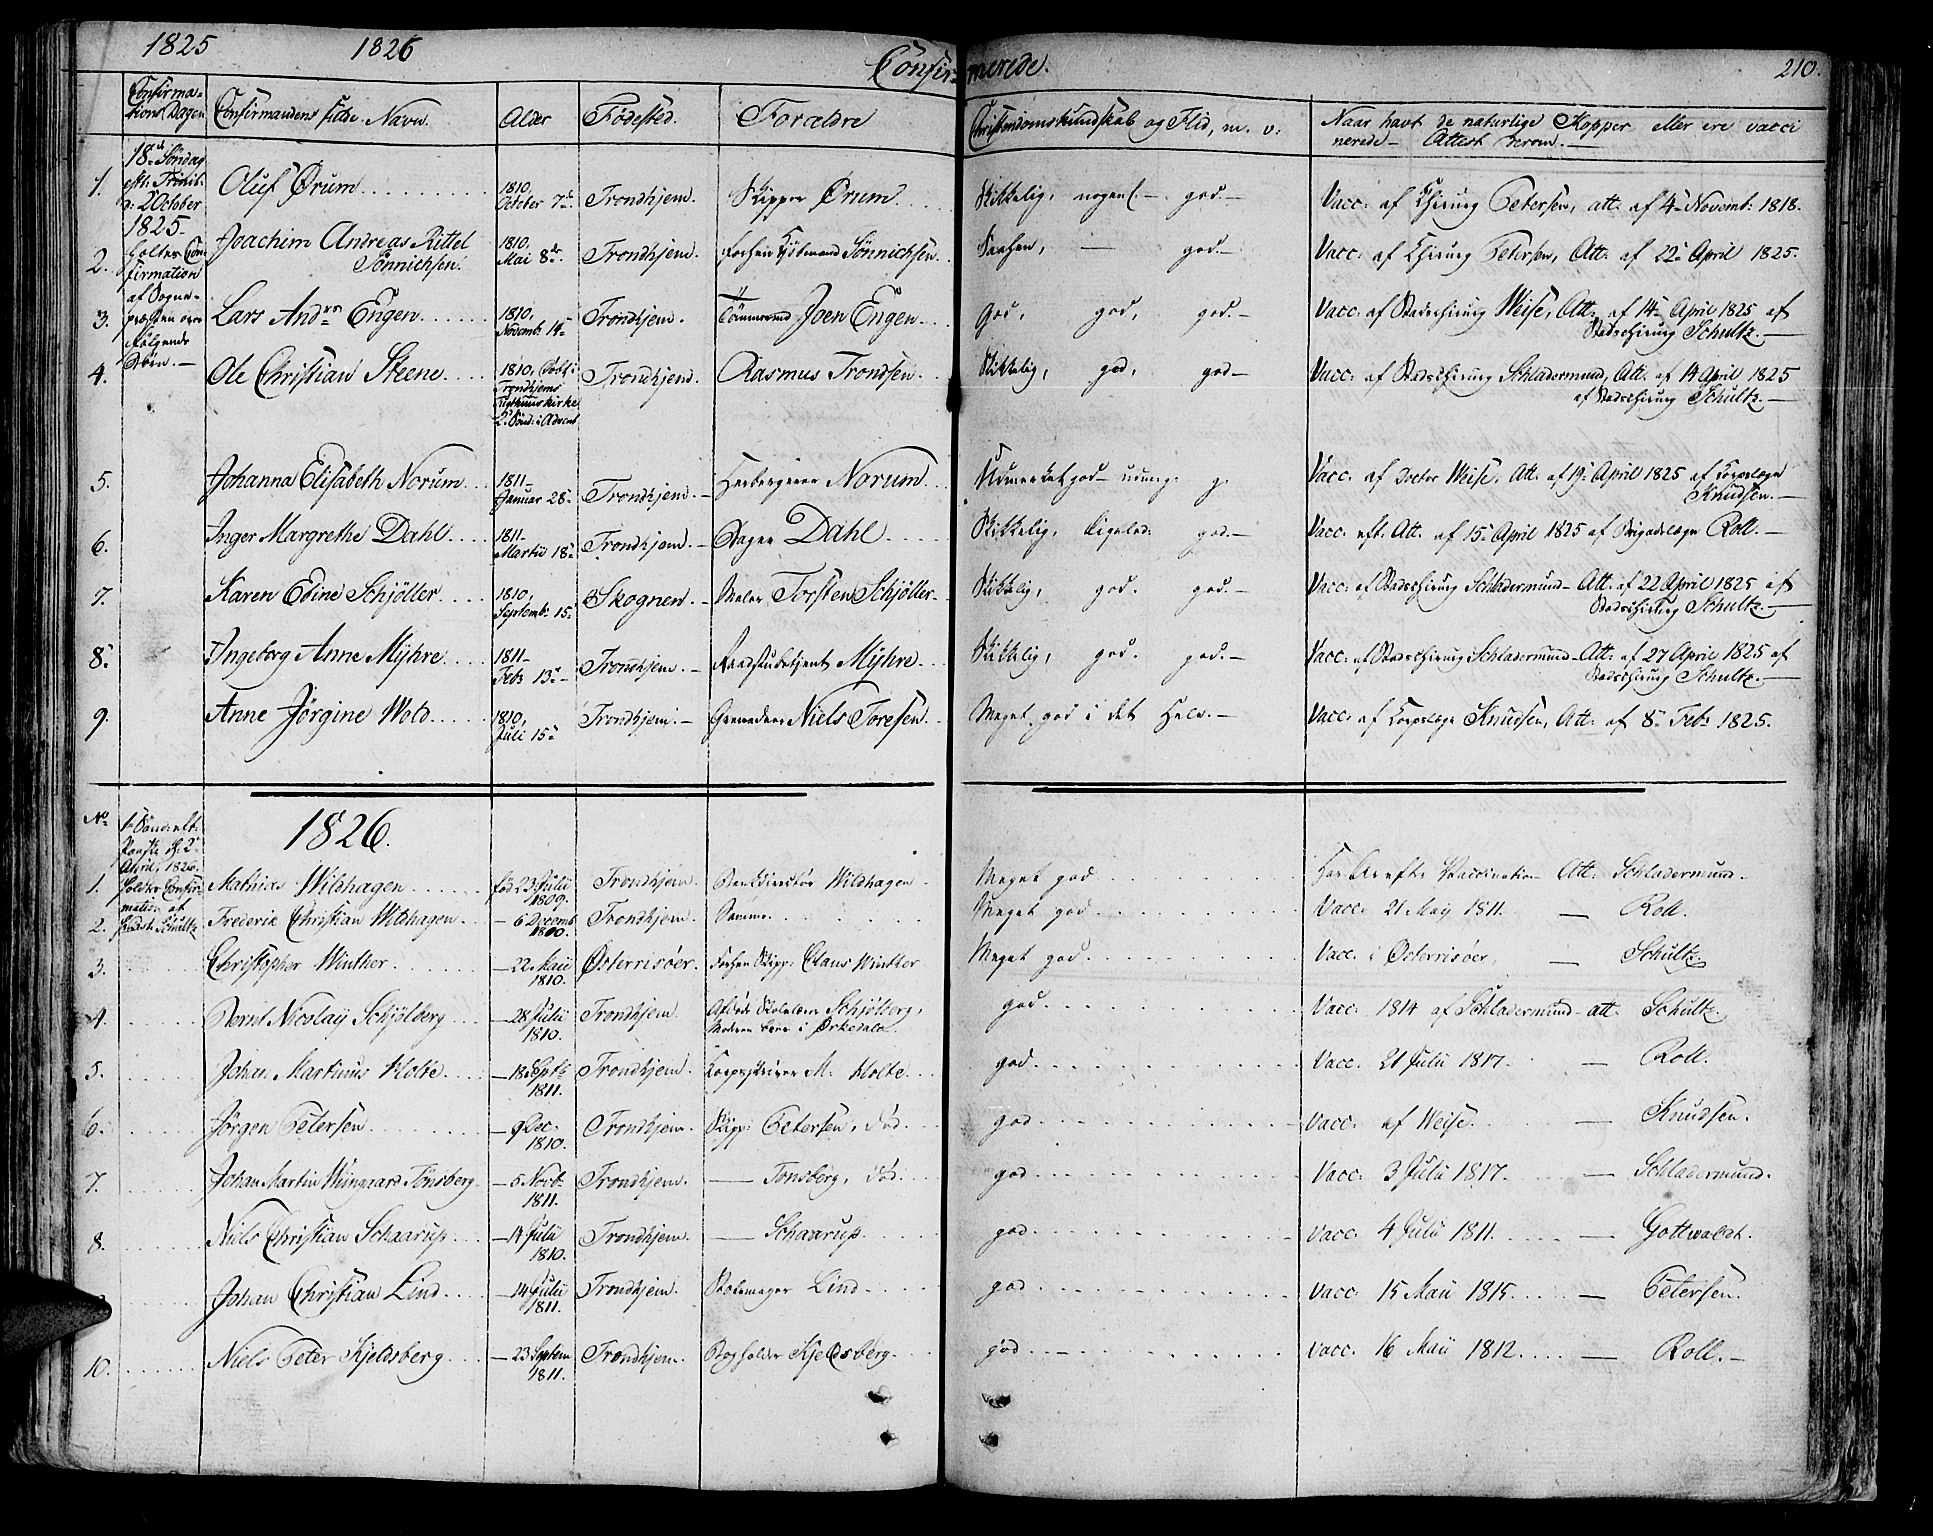 1825 1826 Confirmerede. 210.
Confirmations Dagen Confirmandens fulde Navn. Alder Fødested. Forældre Christendomskundskab og Flid, m. v. Naar havt de naturlige Kopper eller ere vaccinerede - Attest derom. -
18de Søndag eft: Trinit: d: 2 October 1825- holdes Confirmation af Sogne-
1. Oluf Ørum 1810, October 7de Trondhjem. Skipper Ørum. Skikkelig, nogenl. - god. - Vacc: af Chirurg Petersen, att: af 4- Novemb: 1818.
2. Joachim Andreas Rittel Sönnichsen. 1810, Mai 8de Trondhjem. Sönnichsen. - god.- Vacc: af Chirurg Petersen, Att: af 22- April 1825.
3. Lars Andrs Engen 1810, Novemb: 14- Trondhjem. Tömmermd Joen Engen. God, god, god.- Vacc: af Stadschirurg Weise, Att: af 14- April 1825 af Stadschirurg Schultz. -
4. Ole Christian Steene 1810, Döbt i Trondhjems Tugthuuskirke 2 Sönd: i Advent Trondhjem. Rasmus Trondsen. Skikkelig, god, god- Vacc: af Stadschirurg Schladermund, Att: af 14 April 1825 af Stadschirurg Schultz. -
5. Johanna Elisabeth Norum 1811- Januar 28- Trondhjem. - Herbergerer Norum. Udmærket god- udmg: g. Vacc: af Doctor Weise, Att: af 19- April 1825 af Corpslæge Knudsen. -
6. Inger Margrethe Dahl. 1811- Martii 18- Trondhjem. - Dahl Skikkelig, ligeled: god.- Vacc: eft. Att: af 15- April 1825 af Brigadelæge Roll. -
7. Karen Edine Schjöller. 1810, Septemb: 15- Skognen. - Maler Torsten Schjöller- Skikkelig, god. god.- Vacc: af Stadschirurg Schladermund- Att: af 22 April 1825 af Stadschirurg Schultz. -
8. Ingeborg Anne Myhre 1811- Febr 13- Trondhjem. - Raadstuebetjent Myhre. Skikkelig, god. god.- Vacc: af Stadschirurg Schladermund- Att: af 27 April 1825 af Stadschirurg Schultz. -
9. Anne Jörgine Wold 1810, Juli 15- Trondhjem. - Grenadeer Niels Toresen. Meget god i det Hele. - Vacc: af Corpslæge Knudsen, Att: af 8- Febr 1825.
No 1826.
1- Sönd: eft: Paaske d: 2- April 1826. holdes Confirmation af Schultz
1. Mathias Wildhagen föd 23 Julii 1809. Trondhjem. Wildhagen Meget god Vaccination Att: Schladermund.
2. Frederik Christian Wildhagen - 6 Decemb Trondhjem. Samme. Meget god Vacc: 21 Maij 1811. - Roll.
3. Christopher Winther - 22 Maii 1810. Österrisöer. Skipp: Claus Winther Meget god Vacc: i Österrisöer, - Schultz
4. Bernt Nicolaij Schjölberg - 28 Julii 1810. Trondhjem. Schjölberg, i Ørkedalen god Vacc: 1814 af Schladermund- att: Schultz
5. Johan Martinus Holte - 18 Septb 1811. Trondhjem. Corpsskriver M. Holte. god Vacc: 21 Julii 1817. - Roll.
6. Jörgen Petersen - 9 Dec. 1810. Trondhjem. Skipp: Petersen, död. god Vacc: af Weise. - Knudsen.
7. Johan Martin Wüngaard Tönsberg - 5 Novb 1811. Trondhjem. - Tonsberg, död. god Vacc: 3 Julii 1817. - Schladermund.
8. Niels Christian Schaarup - 14 Julii 1810. Trondhjem. - Schaarup. god Vacc: 4 Julii 1811. - Gottwaldt.
Johan Christian Lind - 14 Julii 1811. Trondhjem. Lind god Vacc: 15 Maii 1815. - Petersen.
10. Niels Peter Kjeldsberg - 23 Septem 1811. Trondhjem. Bogholder Kjeldsberg. god Vacc: 16 Maii 1812. - Roll. -